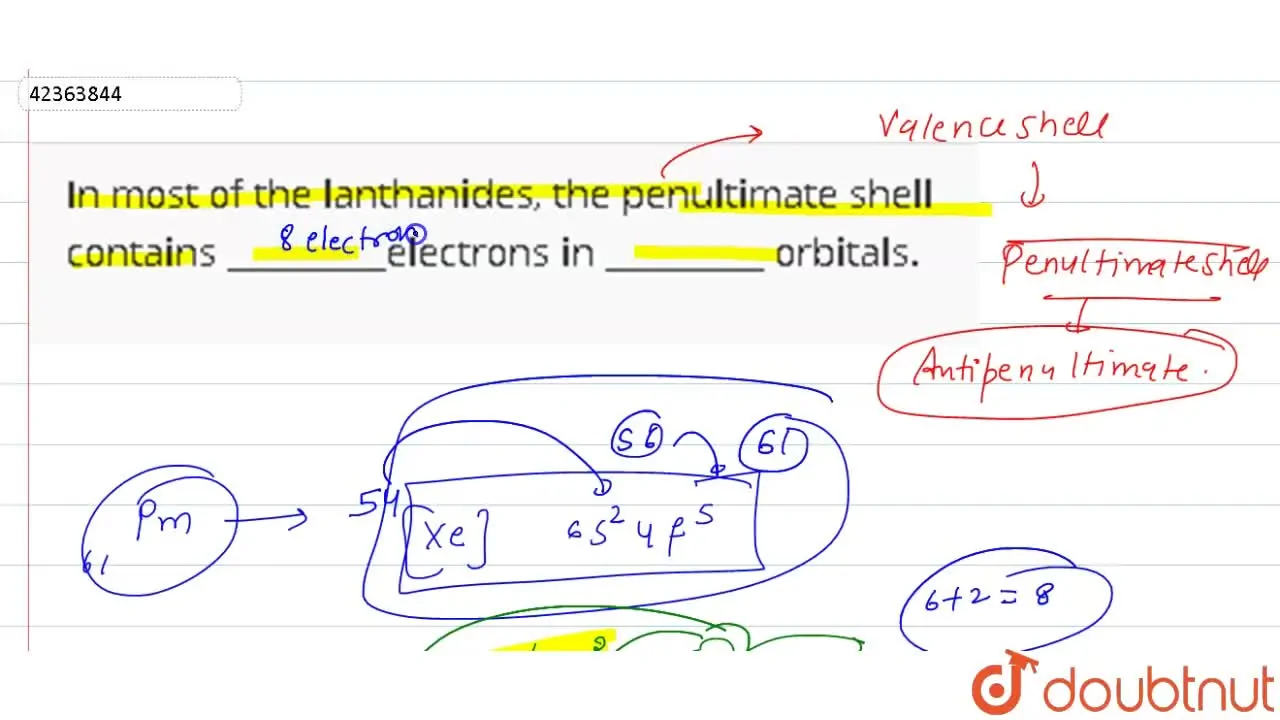 42363844
Valence shell
In most of the lanthanides, the penultimate shell
8 electrons
contains _________ electrons in _________ orbitals.
Penultimate shell
Antipenultimate.
56 61
Pm 54 [Xe] 6s² 4f⁵
61
6+2=8
doubtnut